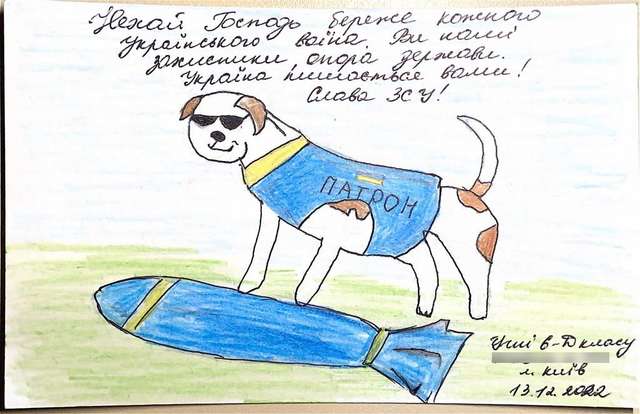 Нехай Господь береже кожного
українського воїна. Ви наші
захистники, опора держави.
Україна пишається вами!
Слава ЗСУ!
ПАТРОН
Учні 6-Д класу
м. Київ
13.12.2022